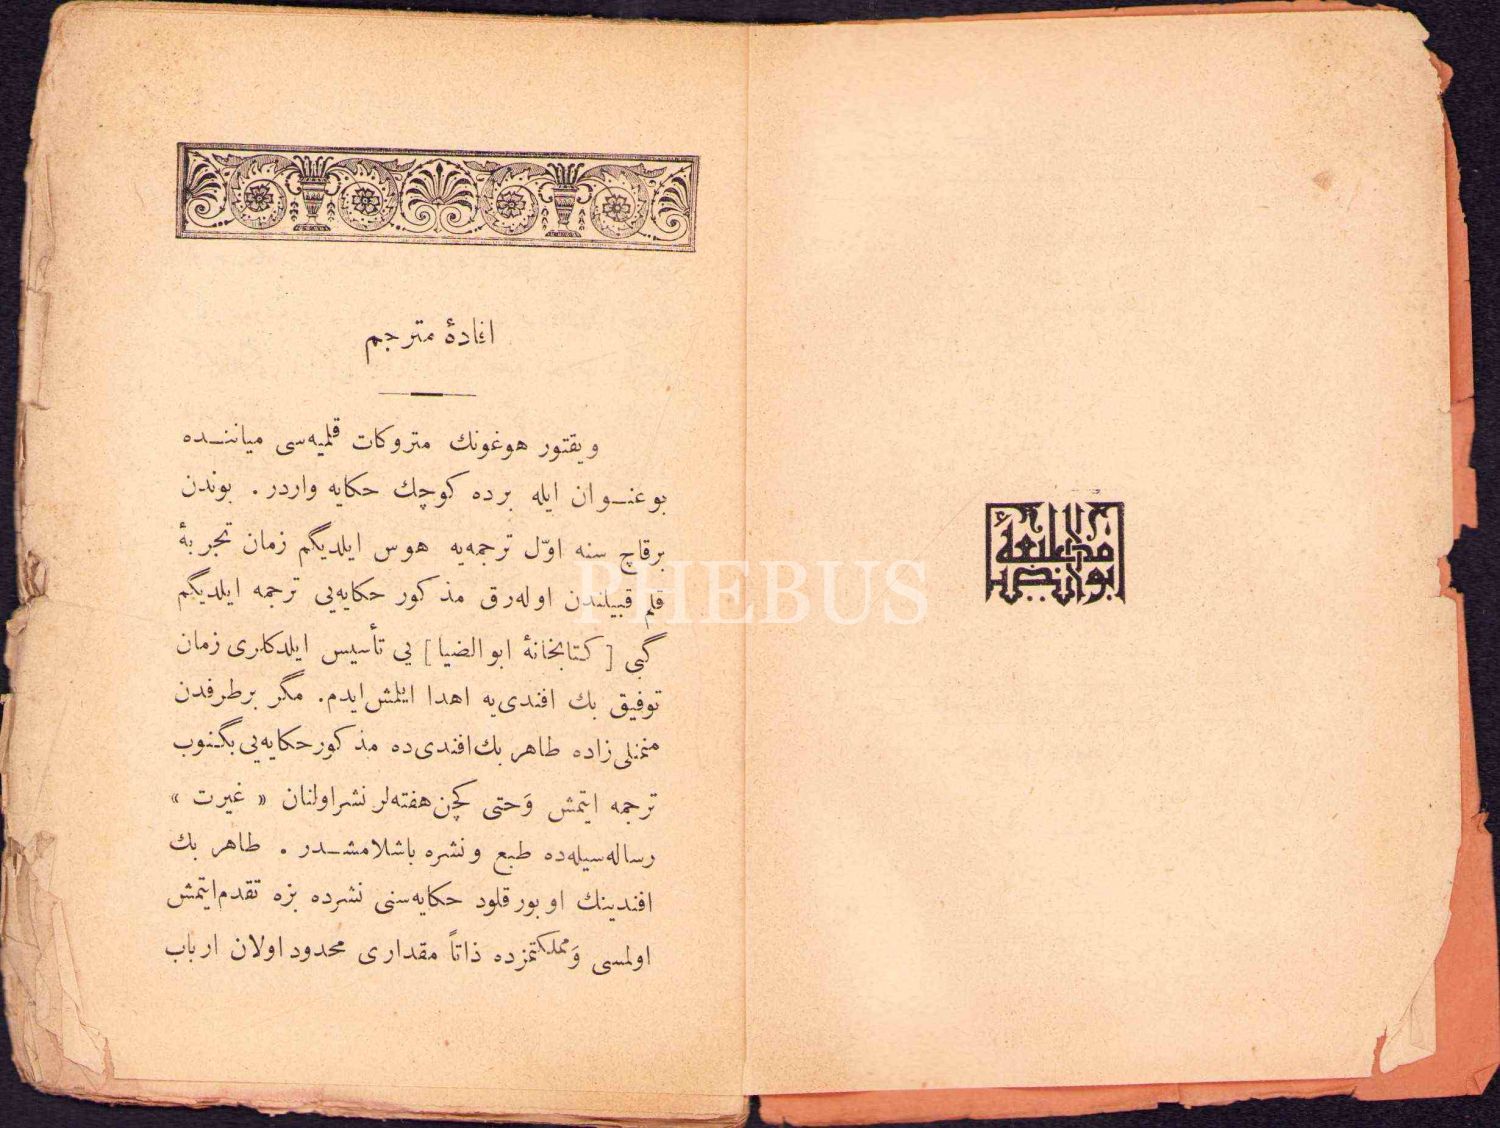 مطبعۀ
ابوالضیا
افادۀ مترجم
ویقتور هوغونك متروكات قلمیه‌سی میاننده
بو عنوان ایله برده كوچك حكایه واردر. بوندن
برقاچ سنه اوّل ترجمه‌یه هوس ایلدیگم زمان تجربۀ
قلم قبیلندن اوله‌رق مذكور حكایه‌یی ترجمه ایلدیگم
گبی [كتابخانۀ ابوالضیا] یی تأسیس ایلدكلری زمان
توفیق بك افندی‌یه اهدا ایلمش ایدم. مگر برطرفدن
منمنلی زاده طاهر بك افندی‌ده مذكور حكایه‌یی بگنوب
ترجمه ایتمش وَحتی كچن هفته‌لر نشر اولنان « غیرت »
رساله‌سیله‌ده طبع و نشره باشلامشدر . طاهر بك
افندینك او بورقلود حكایه‌سنی نشرده بزه تقدم ایتمش
اولمسی وَمملكتمزده ذاتاً مقداری محدود اولان ارباب
PHEBUS